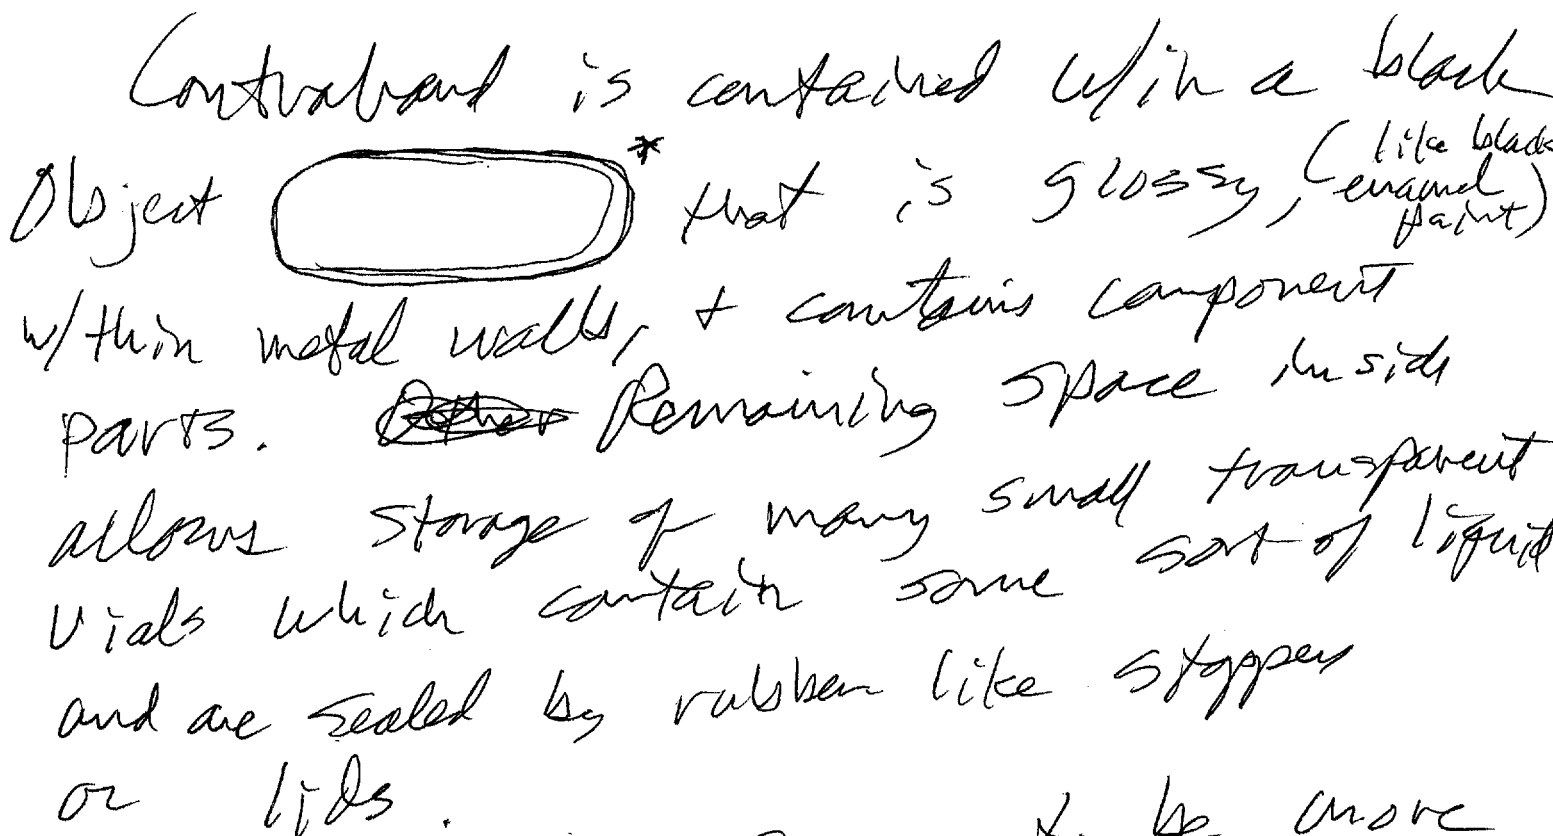 Contraband is contained w/in a black
Object * that is glossy, (like black
enamel
paint)
w/thin metal walls, + contains component
parts. Remaining space inside
allows storage of many small transparent
Vials which contain some sort of liquid
and are sealed by rubber like stoppers
or lids.
be more